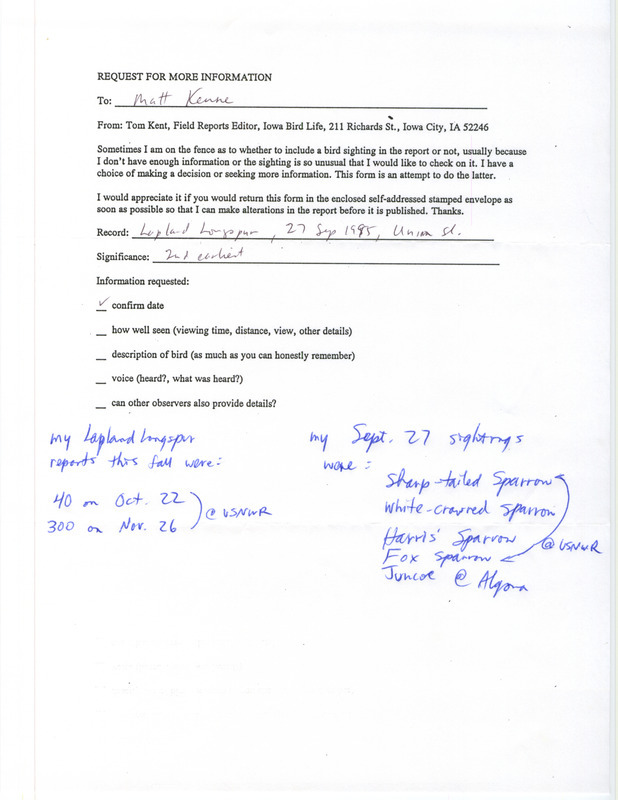 REQUEST FOR MORE INFORMATION
To: Matt Kenne
From: Tom Kent, Field Reports Editor, Iowa Bird Life, 211 Richards St., Iowa City, IA 52246
Sometimes I am on the fence as to whether to include a bird sighting in the report or not, usually because
I don't have enough information or the sighting is so unusual that I would like to check on it. I have a
choice of making a decision or seeking more information. This form is an attempt to do the latter.
I would appreciate it if you would return this form in the enclosed self-addressed stamped envelope as
soon as possible so that I can make alterations in the report before it is published. Thanks.
Record: Lapland Longspur, 27 Sep 1995, Union Sl.
Significance: 2nd earliest
Information requested:
✓ confirm date
__ how well seen (viewing time, distance, view, other details)
__ description of bird (as much as you can honestly remember)
__ voice (heard?, what was heard?)
__ can other observers also provide details?
my Lapland Longspur
reports this fall were:
40 on Oct. 22
300 on Nov. 26
@ USNWR
my Sept. 27 sightings
were:
Sharp-tailed Sparrow
White-crowned Sparrow
Harris' Sparrow
Fox Sparrow
@ USNWR
Juncoe @ Algona